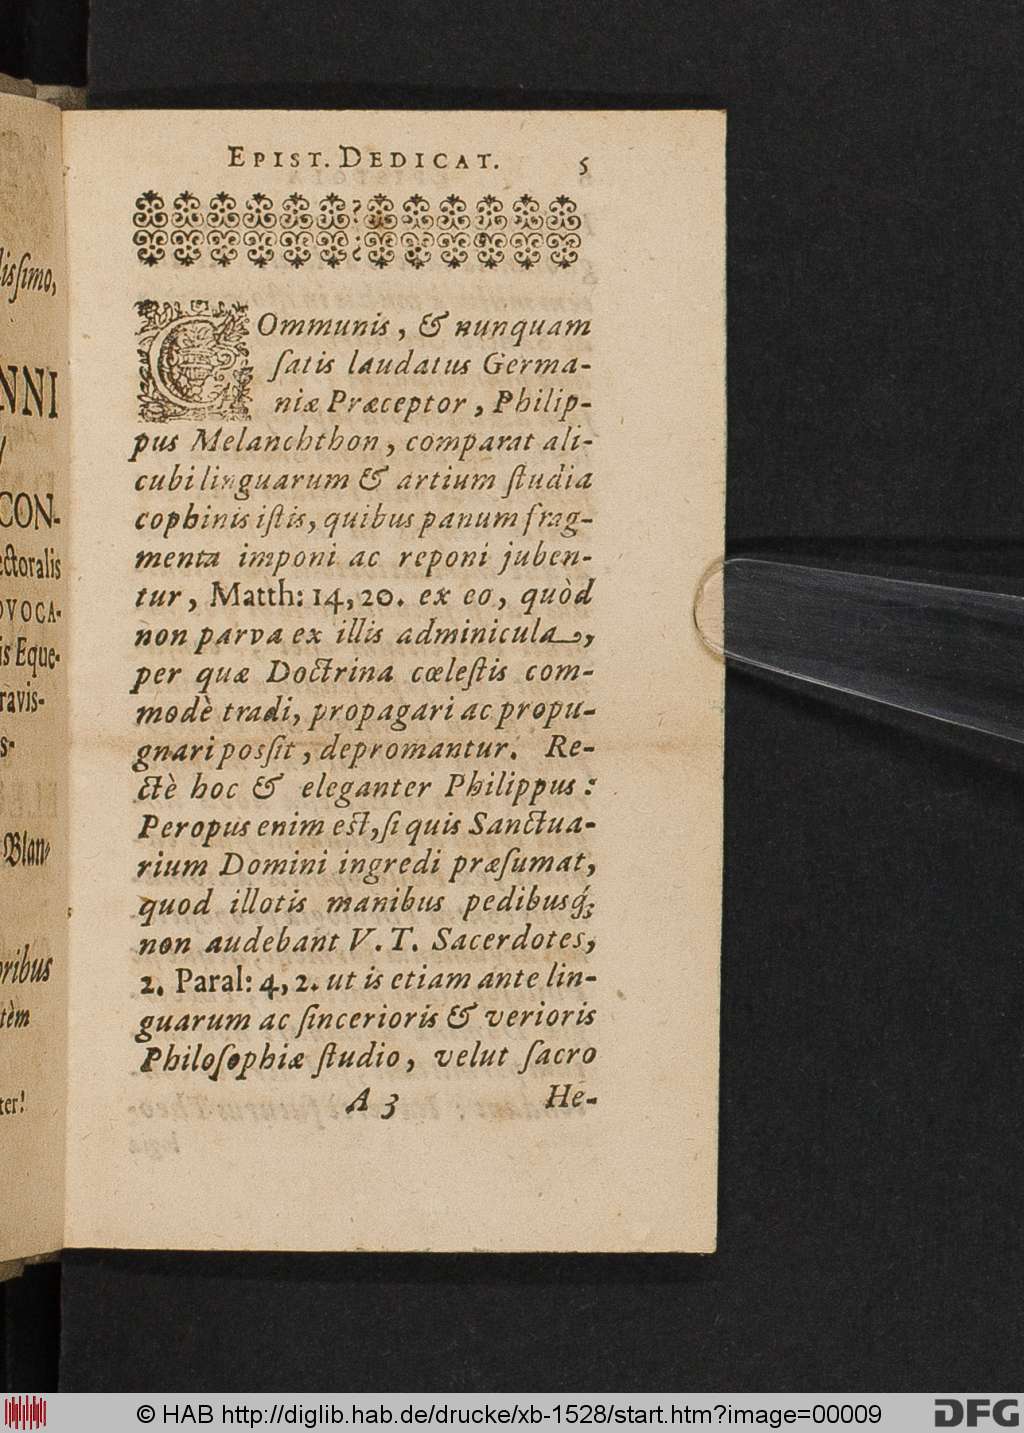 lissimo,
NNI
CON-
ectoralis
OVOCA-
is Eque-
ravis-
s-
Blan-
oribus
tèm
ter!
EPIST. DEDICAT. 5
COmmunis, & nunquam
ſatis laudatus Germa-
niæ Præceptor, Philip-
pus Melanchthon, comparat ali-
cubi linguarum & artium ſtudia
cophinis iſtis, quibus panum frag-
menta imponi ac reponi juben-
tur, Matth: 14, 20. ex eo, quòd
non parva ex illis adminicula,
per quæ Doctrina cœleſtis com-
modè tradi, propagari ac propu-
gnari posſit, depromantur. Re-
ctè hoc & eleganter Philippus:
Peropus enim est, ſi quis Sanctua-
rium Domini ingredi præſumat,
quod illotis manibus pedibusq́;
non audebant V. T. Sacerdotes,
2. Paral: 4, 2. ut is etiam ante lin-
guarum ac ſincerioris & verioris
Philoſophiæ ſtudio, velut ſacro
A 3 He-
© HAB http://diglib.hab.de/drucke/xb-1528/start.htm?image=00009
DFG